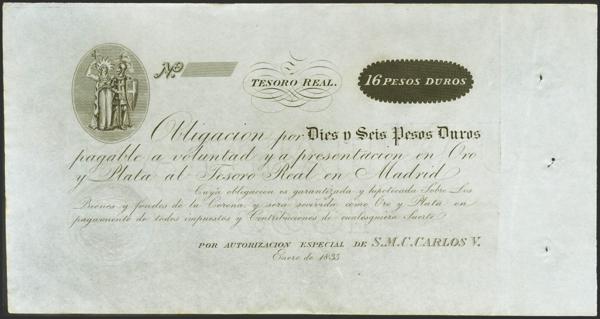 Nº
TESORO REAL.
16 PESOS DUROS
Obligacion por Dies y Seis Pesos Duros
pagable a voluntad y a presentacion en Oro
y Plata al Tesoro Real en Madrid
Cuya obligacion es garantizada y hipotecada Sobre Los
Bienes y fondos de la Corona, y sera recivida como Oro y Plata en
pagamento de todos impuestos y Contribuciones de cualesquiera Suerte
POR AUTORIZACION ESPECIAL DE S.M.C. CARLOS V.
Enero de 1835